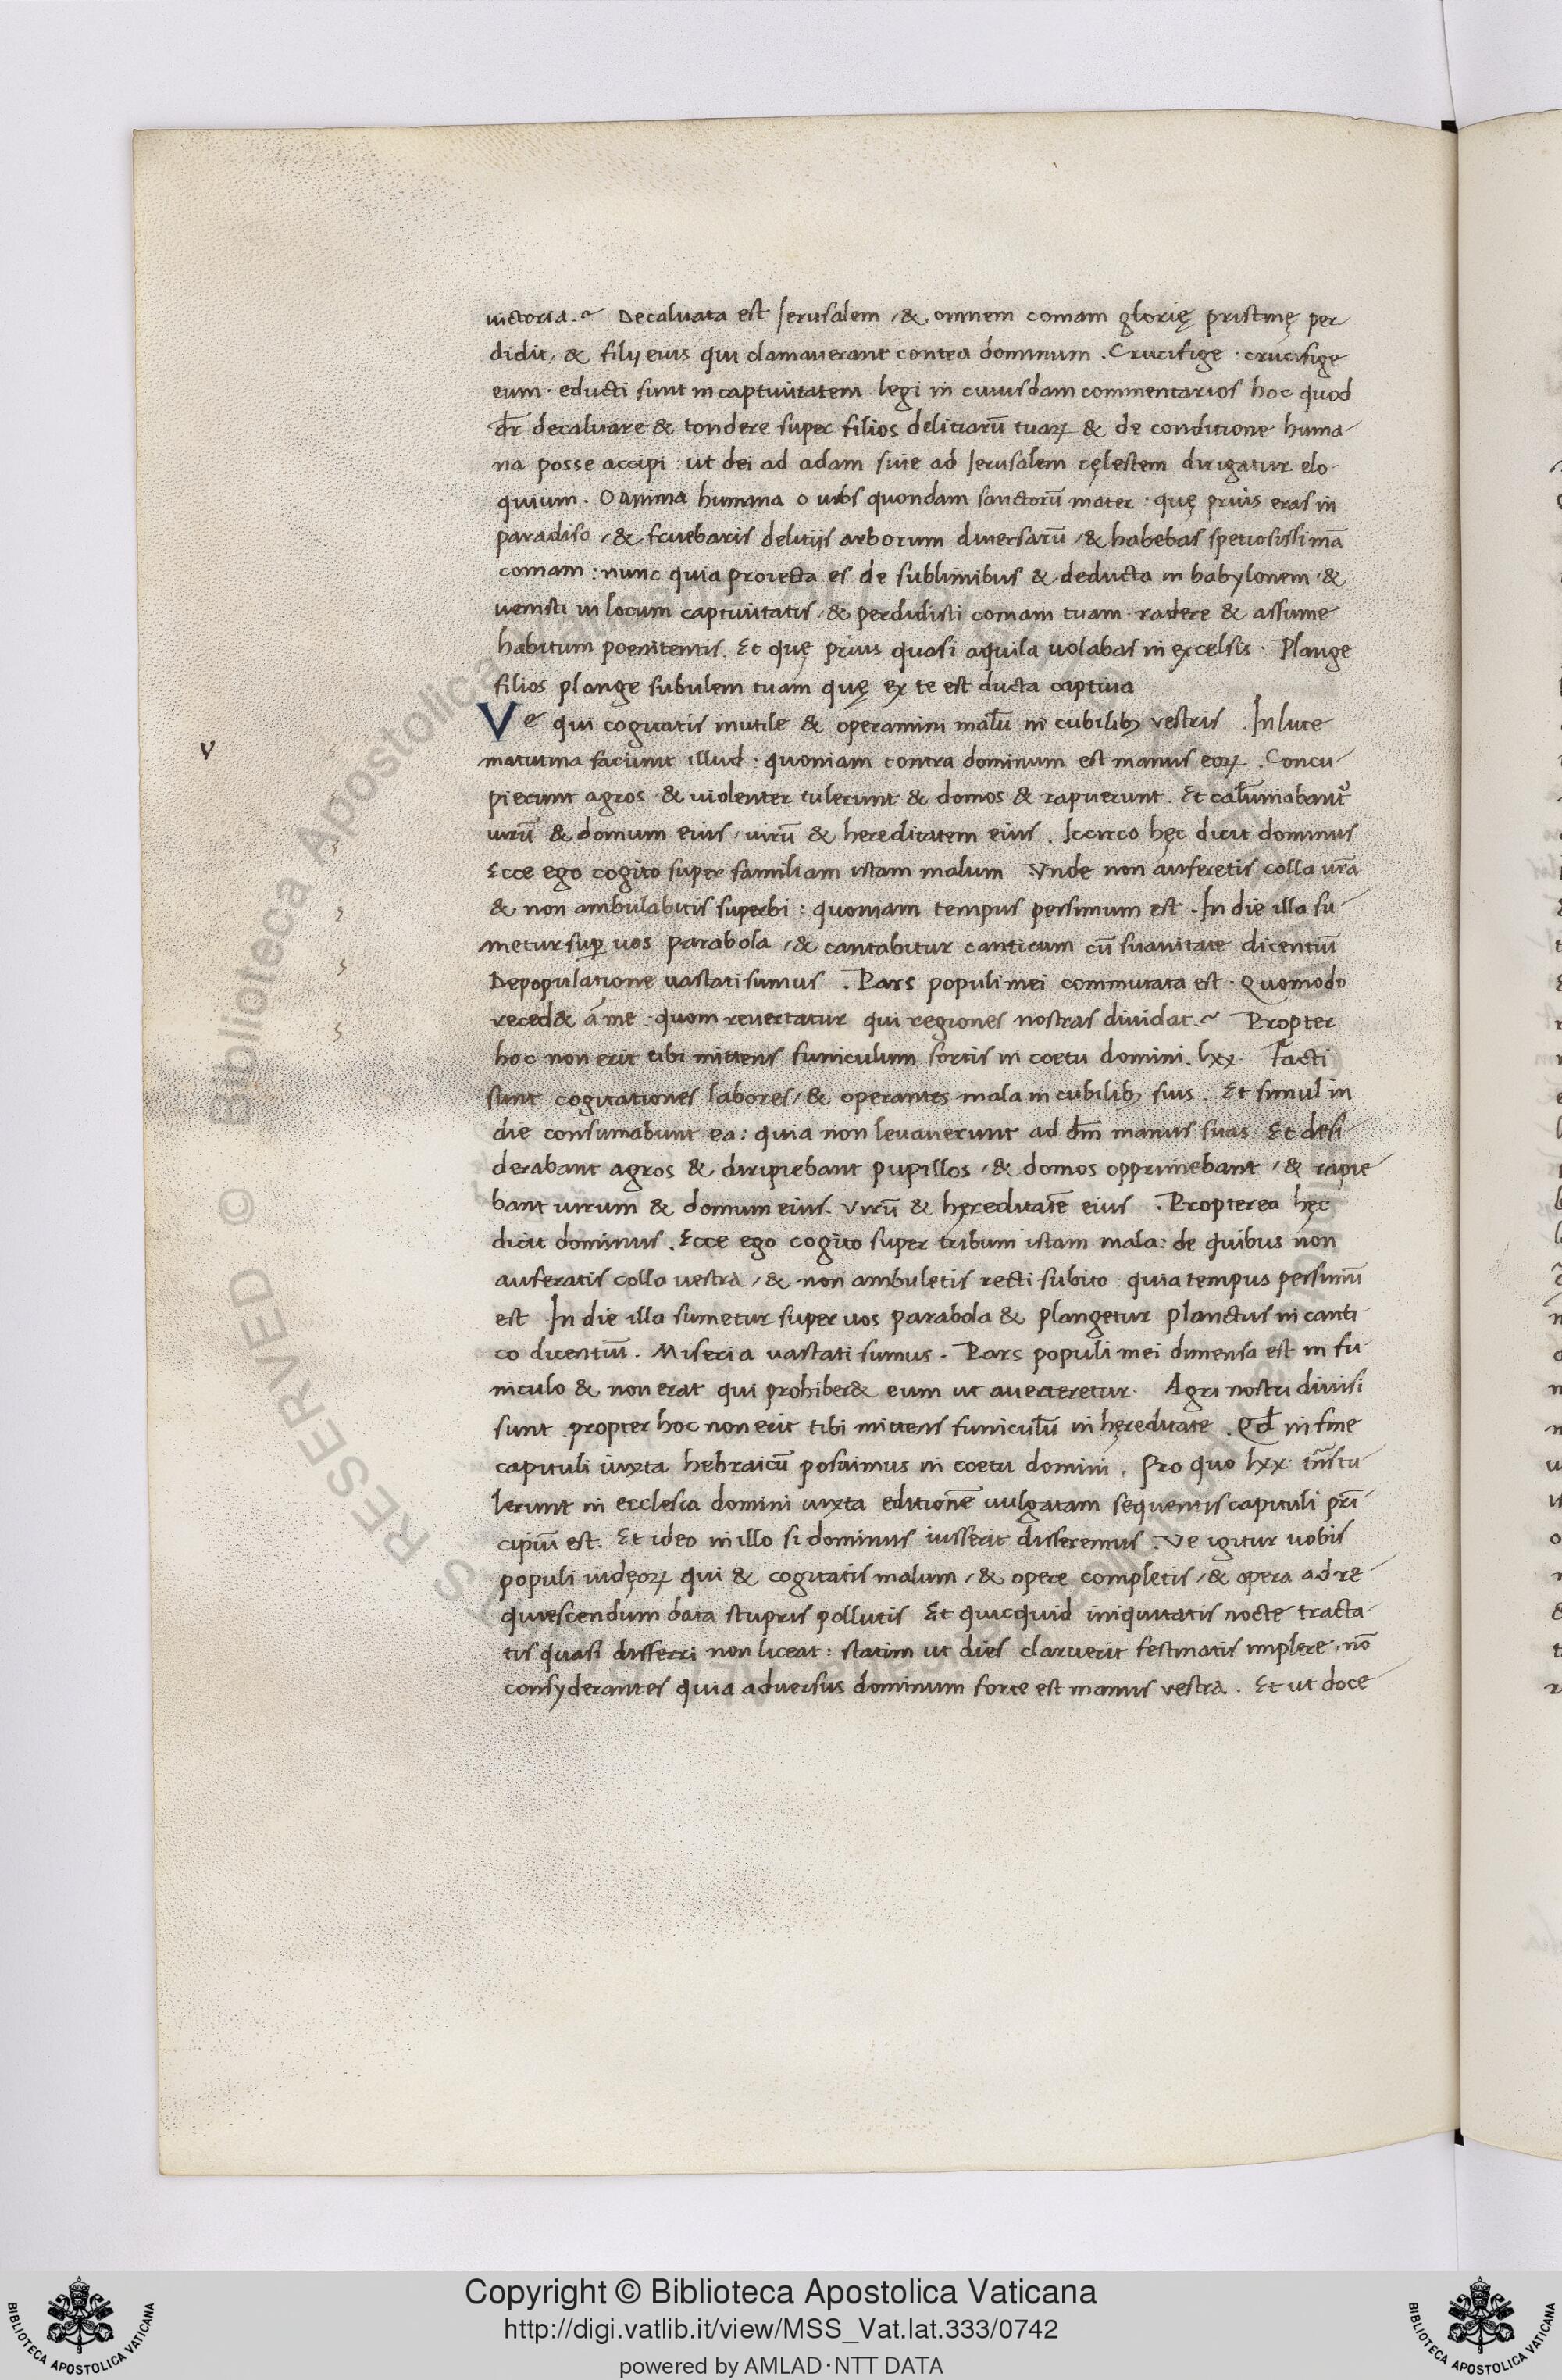 uictoria. Decaluata est Jerusalem, & omnem comam glorię pristinę per
didit, & filij eius qui clamauerant contra dominum. Crucifige: crucifige
eum. educti sunt in captiuitatem. legi in cuiusdam commentarios hoc quod
dr̄ decaluare & tondere super filios delitiarū tuaꝝ & de conditione huma-
na posse accipi: ut dei ad adam siue ad Jerusalem cęlestem dirigatur elo-
quium. O anima humana o urbs quondam sanctorū mater: quę prius eras in
paradiso, & fruebaris delitijs arborum diuersarū, & habebas spetiosissimā
comam: nunc quia proiecta es de sublimibus & deducta in babylonem, &
uenisti in locum captiuitatis, & perdidisti comam tuam. radere & assume
habitum poenitentis. Et quę prius quasi aquila uolabas in excelsis. Plange
filios plange subulem tuam quę ex te est ducta captiua
Ve qui cogitatis inutile & operamini malū in cubilibꝫ vestris. In luce
v
matutina faciunt illud: quoniam contra dominum est manus eoꝝ. Concu-
pierunt agros & uiolenter tulerunt & domos & rapuerunt. Et calūniabant᷑
uirū & domum eius, uirū & hereditatem eius. Iccirco hęc dicit dominus
Ecce ego cogito super familiam istam malum Vnde non auferetis colla ur̄a
& non ambulabitis superbi: quoniam tempus pessimum est. In die illa su-
metur suꝑ uos parabola, & cantabitur canticum cū suauitate dicentiū
Depopulatione uastati sumus. Pars populi mei commutata est. Quomodo
reced& a me quom reuertatur qui regiones nostras diuidat. Propter
hoc non erit tibi mittens funiculum sortis in coetu domini. lxx. Facti
sunt cogitationes labores, & operantes mala in cubilibꝫ suis. Et simul in
die consumabunt ea: quia non leuauerunt ad dm̄ manus suas Et desi-
derabant agros & diripiebant pupillos, & domos opprimebant, & rapie-
bant uirum & domum eius. Virū & hęreditatē eius. Propterea hęc
dicit dominus. Ecce ego cogito super tribum istam mala: de quibus non
auferatis colla uestra, & non ambuletis recti subito: quia tempus pessimū
est In die illa sumetur super uos parabola & plangetur planctus in canti-
co dicentiū. Miseria uastati sumus. Pars populi mei dimensa est in fu-
niculo & non erat qui prohiber& eum ut auerteretur. Agri nostri diuisi
sunt. propter hoc non erit tibi mittens funiculū in hęreditate. Qđ in fine
capituli iuxta hebraicū posuimus in coetu domini. Pro quo lxx. tr̄nstu-
lerunt in ecclesia domini iuxta editionē uulgatam sequentis capituli prī-
cipiū est. Et ideo in illo si dominus iusserit disseremus. Ve igitur uobis
populi iudęoꝝ qui & cogitatis malum, & opere completis, & opera ad re-
quiescendum data stupris pollutis Et quicquid iniquitatis nocte tracta-
tis quasi differri non liceat: statim ut dies claruerit festinatis implere, nō
consyderantes quia aduersus dominum forte est manus vestra. Et ut doce-
© Biblioteca Apostolica
Copyright © Biblioteca Apostolica Vaticana
http://digi.vatlib.it/view/MSS_Vat.lat.333/0742
powered by AMLAD·NTT DATA
BIBLIOTECA APOSTOLICA VATICANA
BIBLIOTECA APOSTOLICA VATICANA